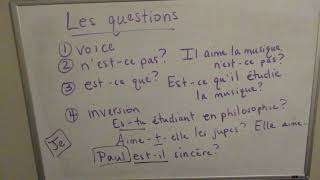 Les questions
① voice
② n'est-ce pas? Il aime la musique,
n'est-ce pas?
③ est-ce que? Est-ce qu'il étudie
la musique?
④ inversion
Es-tu étudiant en philosophie?
Aime-t-elle les jupes? Elle aime
Je
Paul est-il sincère?